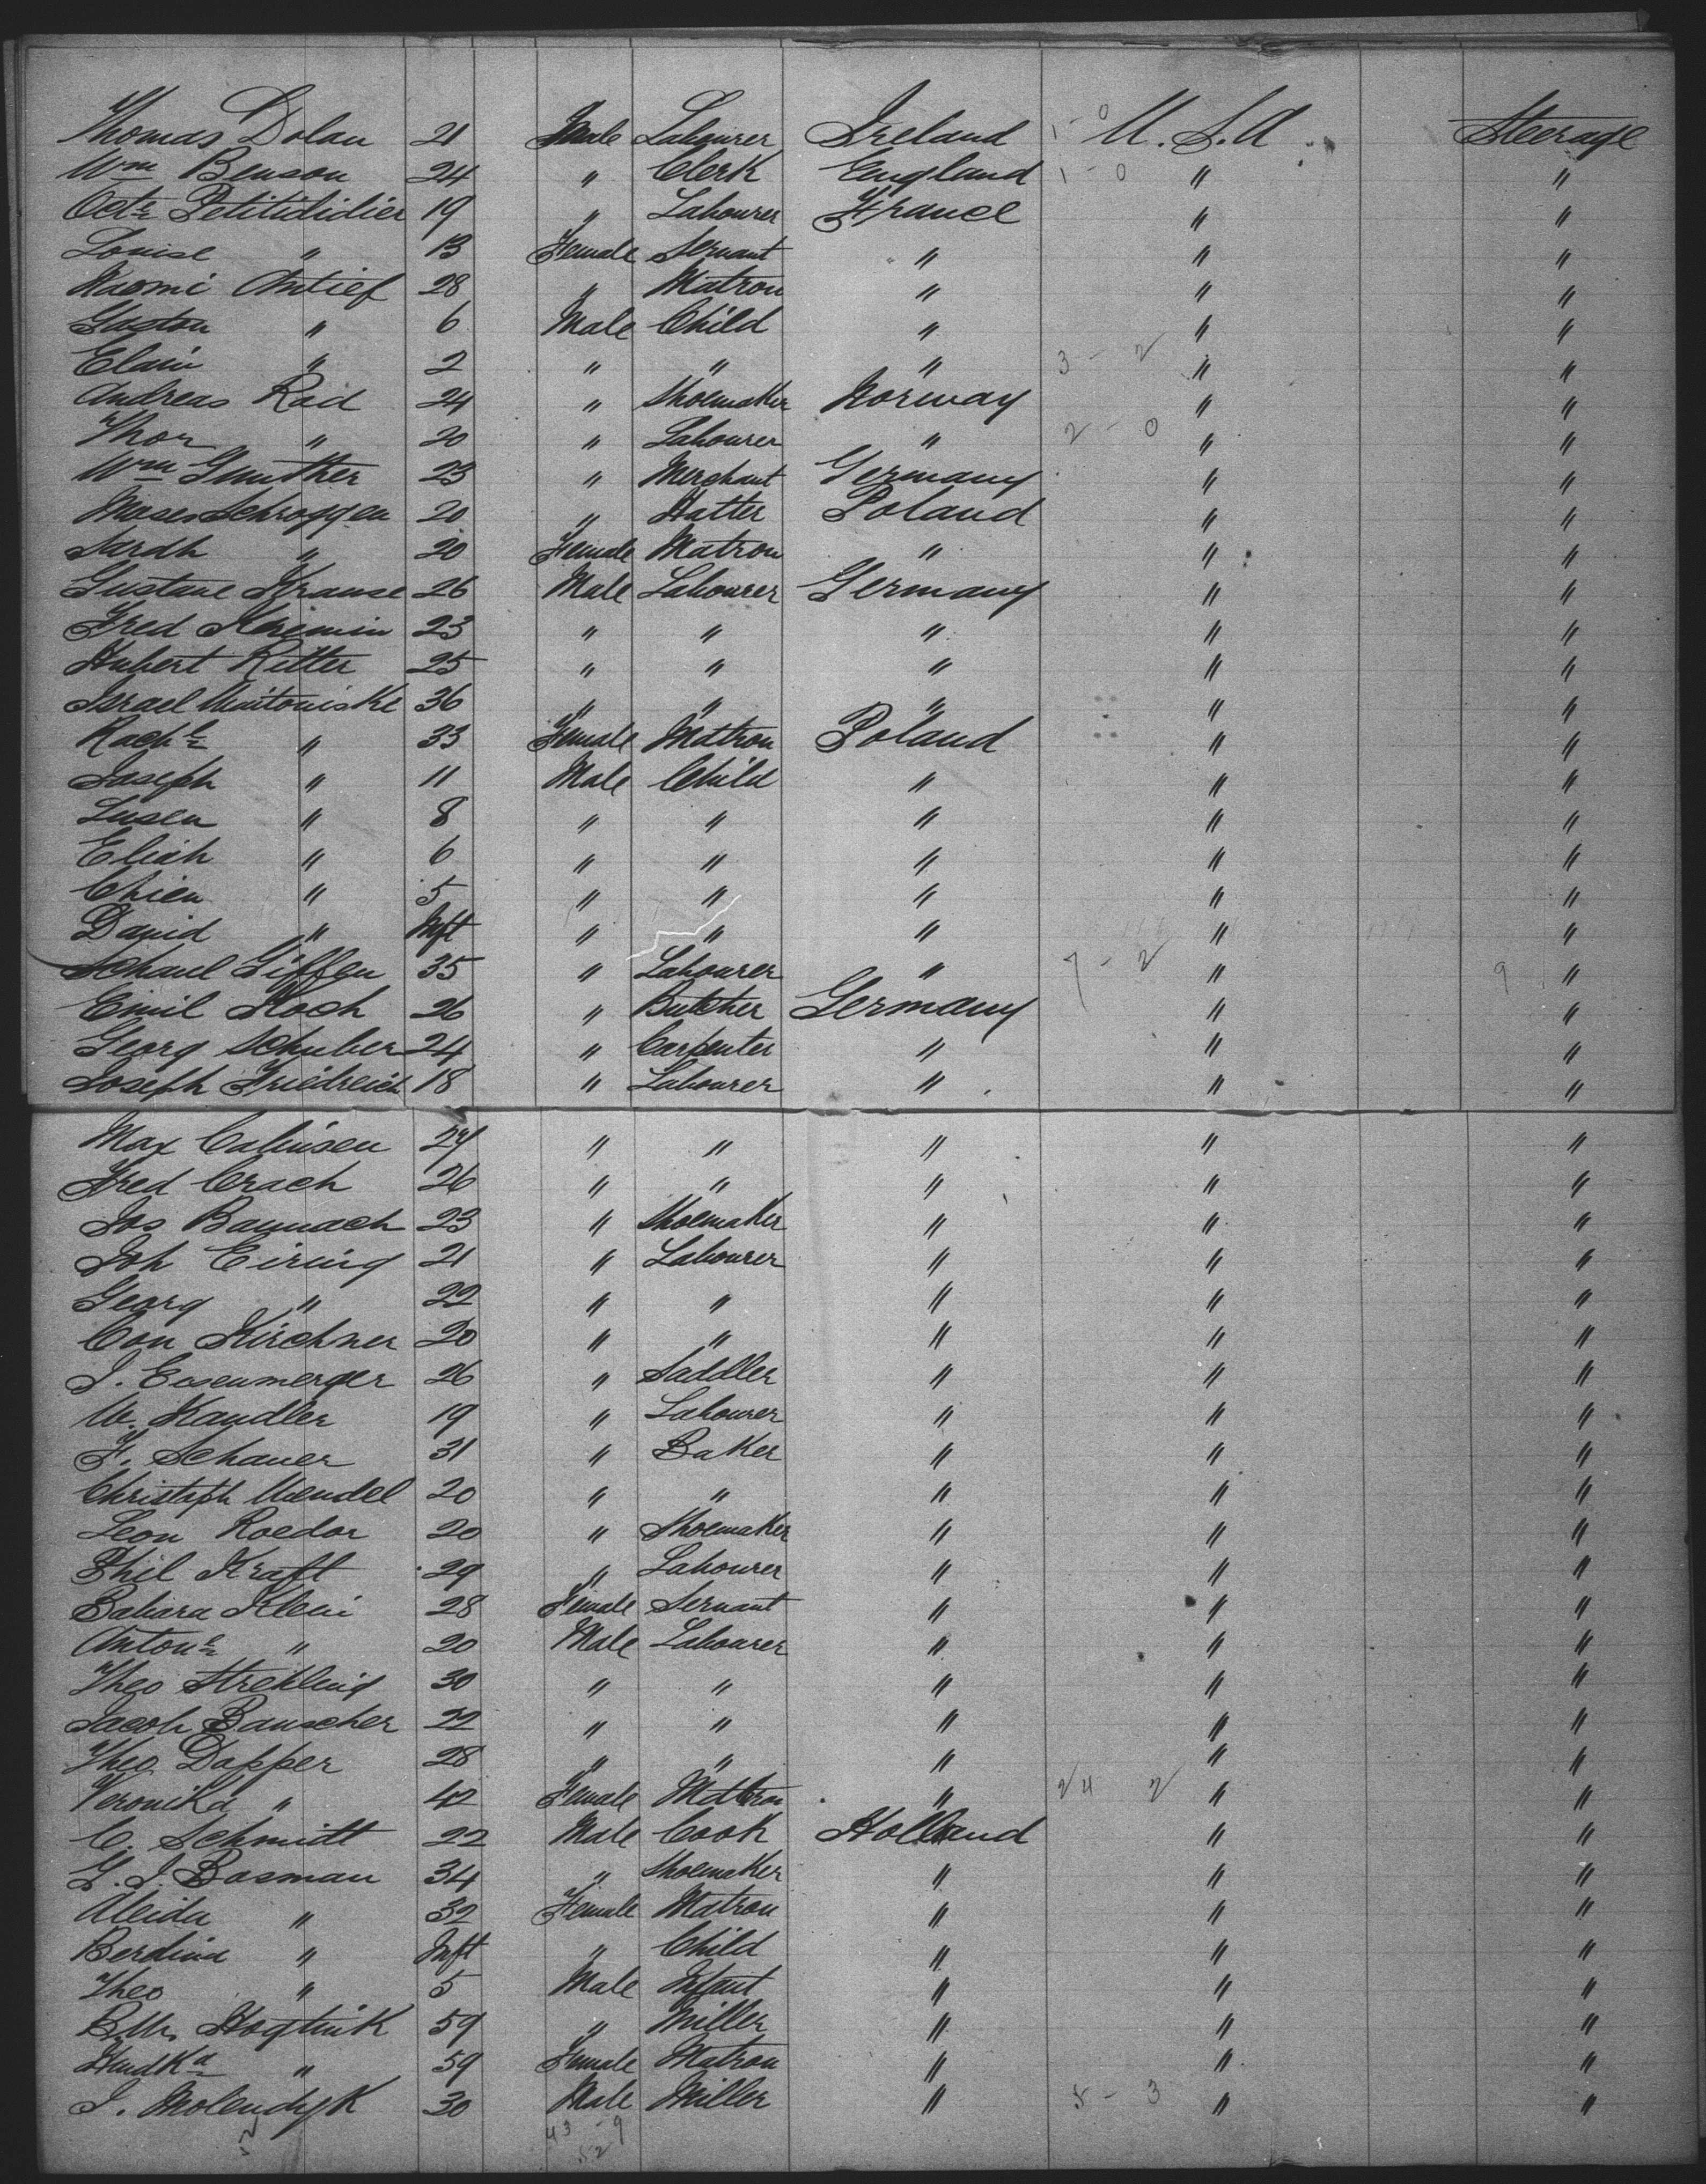 Thomas Dolan 21 Male Labourer Ireland 1 - 0 U.S.A Steerage
Wm Benson 24 " Clerk England 1 - 0 " "
Octe Petitdidier 19 " Labourer France " "
Louise " 13 Female Servant " " "
Naomi Antief 28 " Matron " " "
Gaston " 6 Male Child " " "
Elam " 2 " " " 3 - 2 " "
Andreas Rad 24 " Shoemaker Norway " "
Thor " 20 " Labourer " 2 - 0 " "
Wm Gunther 23 " Merchant Germany " "
Moses Schroggen 20 " Hatter Poland " "
Sarah " 20 Female Matron " " "
Gustave Krause 26 Male Labourer Germany " "
Fred 23 " " " " "
Hubert Ritter 25 " " " " "
Israel 36 " " " " "
Rachl " 33 Female Matron Poland " "
Joseph " 11 Male Child " " "
Lusen " 8 " " " " "
Eliah " 6 " " " " "
Chien " 5 " " " " "
David " Inft " " " " "
Giffen 35 " Labourer " 7 - 2 " 9 "
Emil Koch 26 " Butcher Germany " "
Georg Schuber 24 " Carpenter " " "
Joseph Friedreich 18 " Labourer " " "
Max 24 " " " " "
Fred Crach 26 " " " " "
Jos 23 " Shoemaker " " "
Joh Eiring 21 " Labourer " " "
Georg " 22 " " " " "
Con Kirchner 20 " " " " "
J. Eosenmerger 26 " Saddler " " "
W. Kandler 19 " Labourer " " "
F. Schauer 31 " Baker " " "
Christoph Mendel 20 " " " " "
Leon Roedor 20 " Shoemaker " " "
Phil Kraft 29 " Labourer " " "
Babara Klein 28 Female Servant " " "
Antone " 20 Male Labourer " " "
Theo Strehling 30 " " " " "
Jacob Bauscher 22 " " " " "
Theo Dapper 28 " " " " "
Veronika " 42 Female Matron " 24 2 " "
C. Schmidt 22 Male Cook Holland " "
G. J. Bosman 34 " Shoemaker " " "
Aleida " 32 Female Matron " " "
Berdina " Inft " Child " " "
Theo " 5 Male Infant " " "
Hogtink 59 " Miller " " "
Hendka " 59 Female Matron " " "
J. Molendyk 30 Male Miller " 5 - 3 " "
43 - 9
52